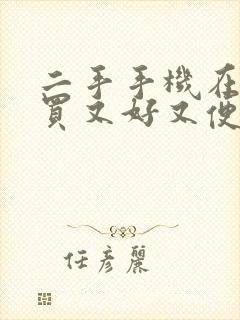 二手手機在
買又好又便
任彥麗